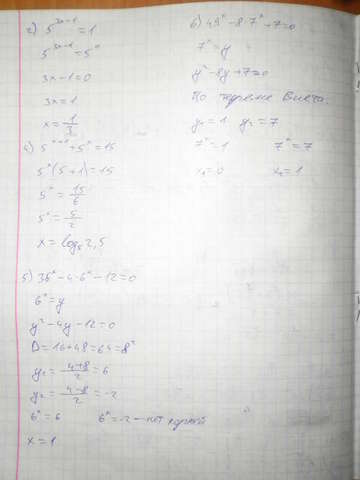 2) 5^(3x-1) = 1
5^(3x-1) = 5^0
3x-1=0
3x=1
x = 1/3
4) 5^(x+1) + 5^x = 15
5^x (5+1) = 15
5^x = 15/6
5^x = 5/2
x = log_5 2,5
5) 36^x - 4·6^x - 12 = 0
6^x = y
y² - 4y - 12 = 0
D = 16+48 = 64 = 8²
y₁ = (4+8)/2 = 6
y₂ = (4-8)/2 = -2
6^x = 6 6^x = -2 – нет корней
x = 1
6) 49^x - 8·7^x + 7 = 0
7^x = y
y² - 8y + 7 = 0
По теореме Виета.
y₁ = 1 y₂ = 7
7^x = 1 7^x = 7
x₁ = 0 x₂ = 1